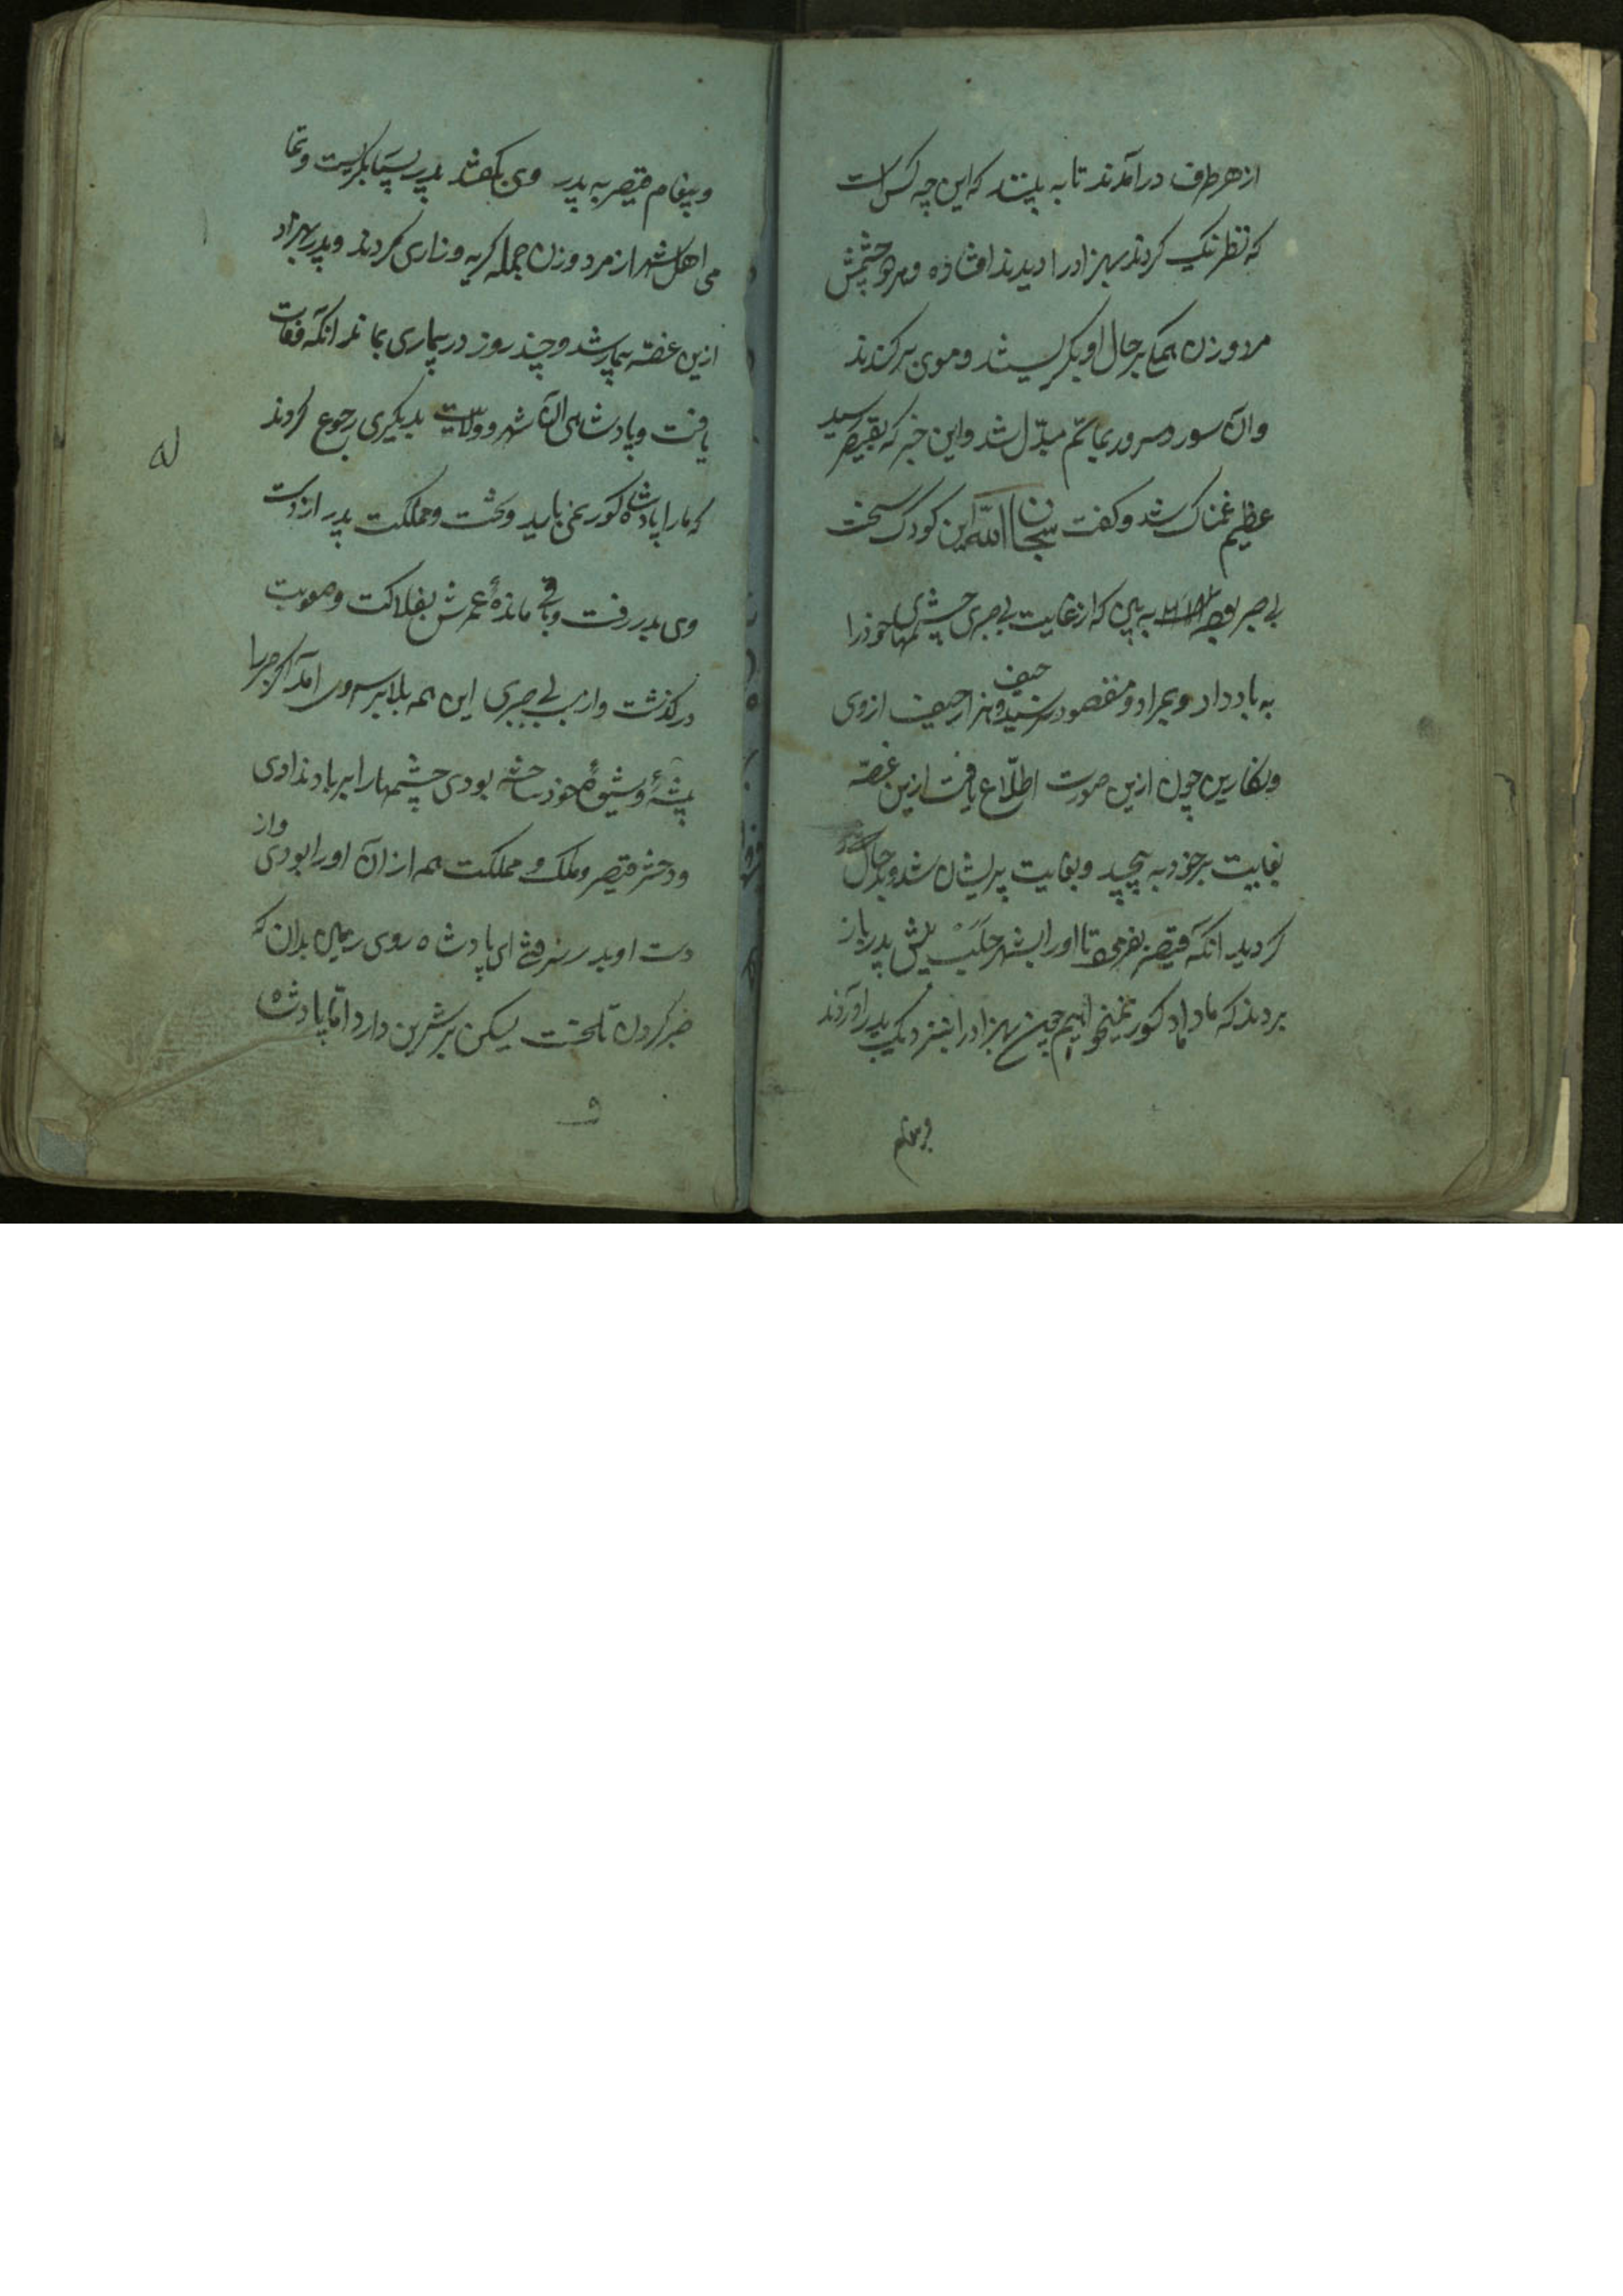 از هر طرف درآمدند تا به بینند که این چه کس است
که نظر نیک کردند بهزاد را دیدند افتاده و هر دو چشمش
مرد و زن همه بر حال او بگریستند و موی برکندند
وآن سور و سرور بماتم مبدّل شد واین خبر که بقیصر رسید
عظیم غمناک شد و گفت سبحان الله این کودک سخت
بی صبر بوده به بین که از غایت بی صبری چشمهای خود را
به باد داد و بمراد و مقصود نرسید و هزار حیف حیف از وی
ونگارین چون ازین صورت اطّلاع یافت ازین غصّه
بغایت بر خود به پیچید و بغایت پریشان شد و بد حال
گردید انگه قیصر بفرمود تا او را بشهر حلب پیش پدر باز
بردند که ما داماد کور نمیخواهیم چون بهزاد را بنزدیک پدر آوردند
و پیغام قیصر به پدر وی بگفتند پدر بسیار بگریست و تما
می اهل شهر از مرد و زن جمله گریه و زاری کردند و پدر بهزاد
ازین غصّه بیمار شد و چند روز در بیماری بماند انگه وفات
یافت و پادشاهی آن شهر و ولایت بدیگری رجوع کردند
که ما را پادشاه کور نمی باید و تخت و مملکت پدر از دست
وی بدر رفت و باقی ماندهٔ عمرش بفلاکت و صعوبت
درگذشت و از بی صبری این همه بلا بر سر وی آمد اگر صبر را
پیشهٔ و شیوهٔ خود ساخته بودی چشمها را بر باد ندادی
و دختر قیصر و ملک و مملکت همه از آن او را بودی و از
دست او بدر نرفتی ای پادشاه روی زمین بدان که
صبر کردن تلخست لیکن بر شیرین دارد امّا پادشاه